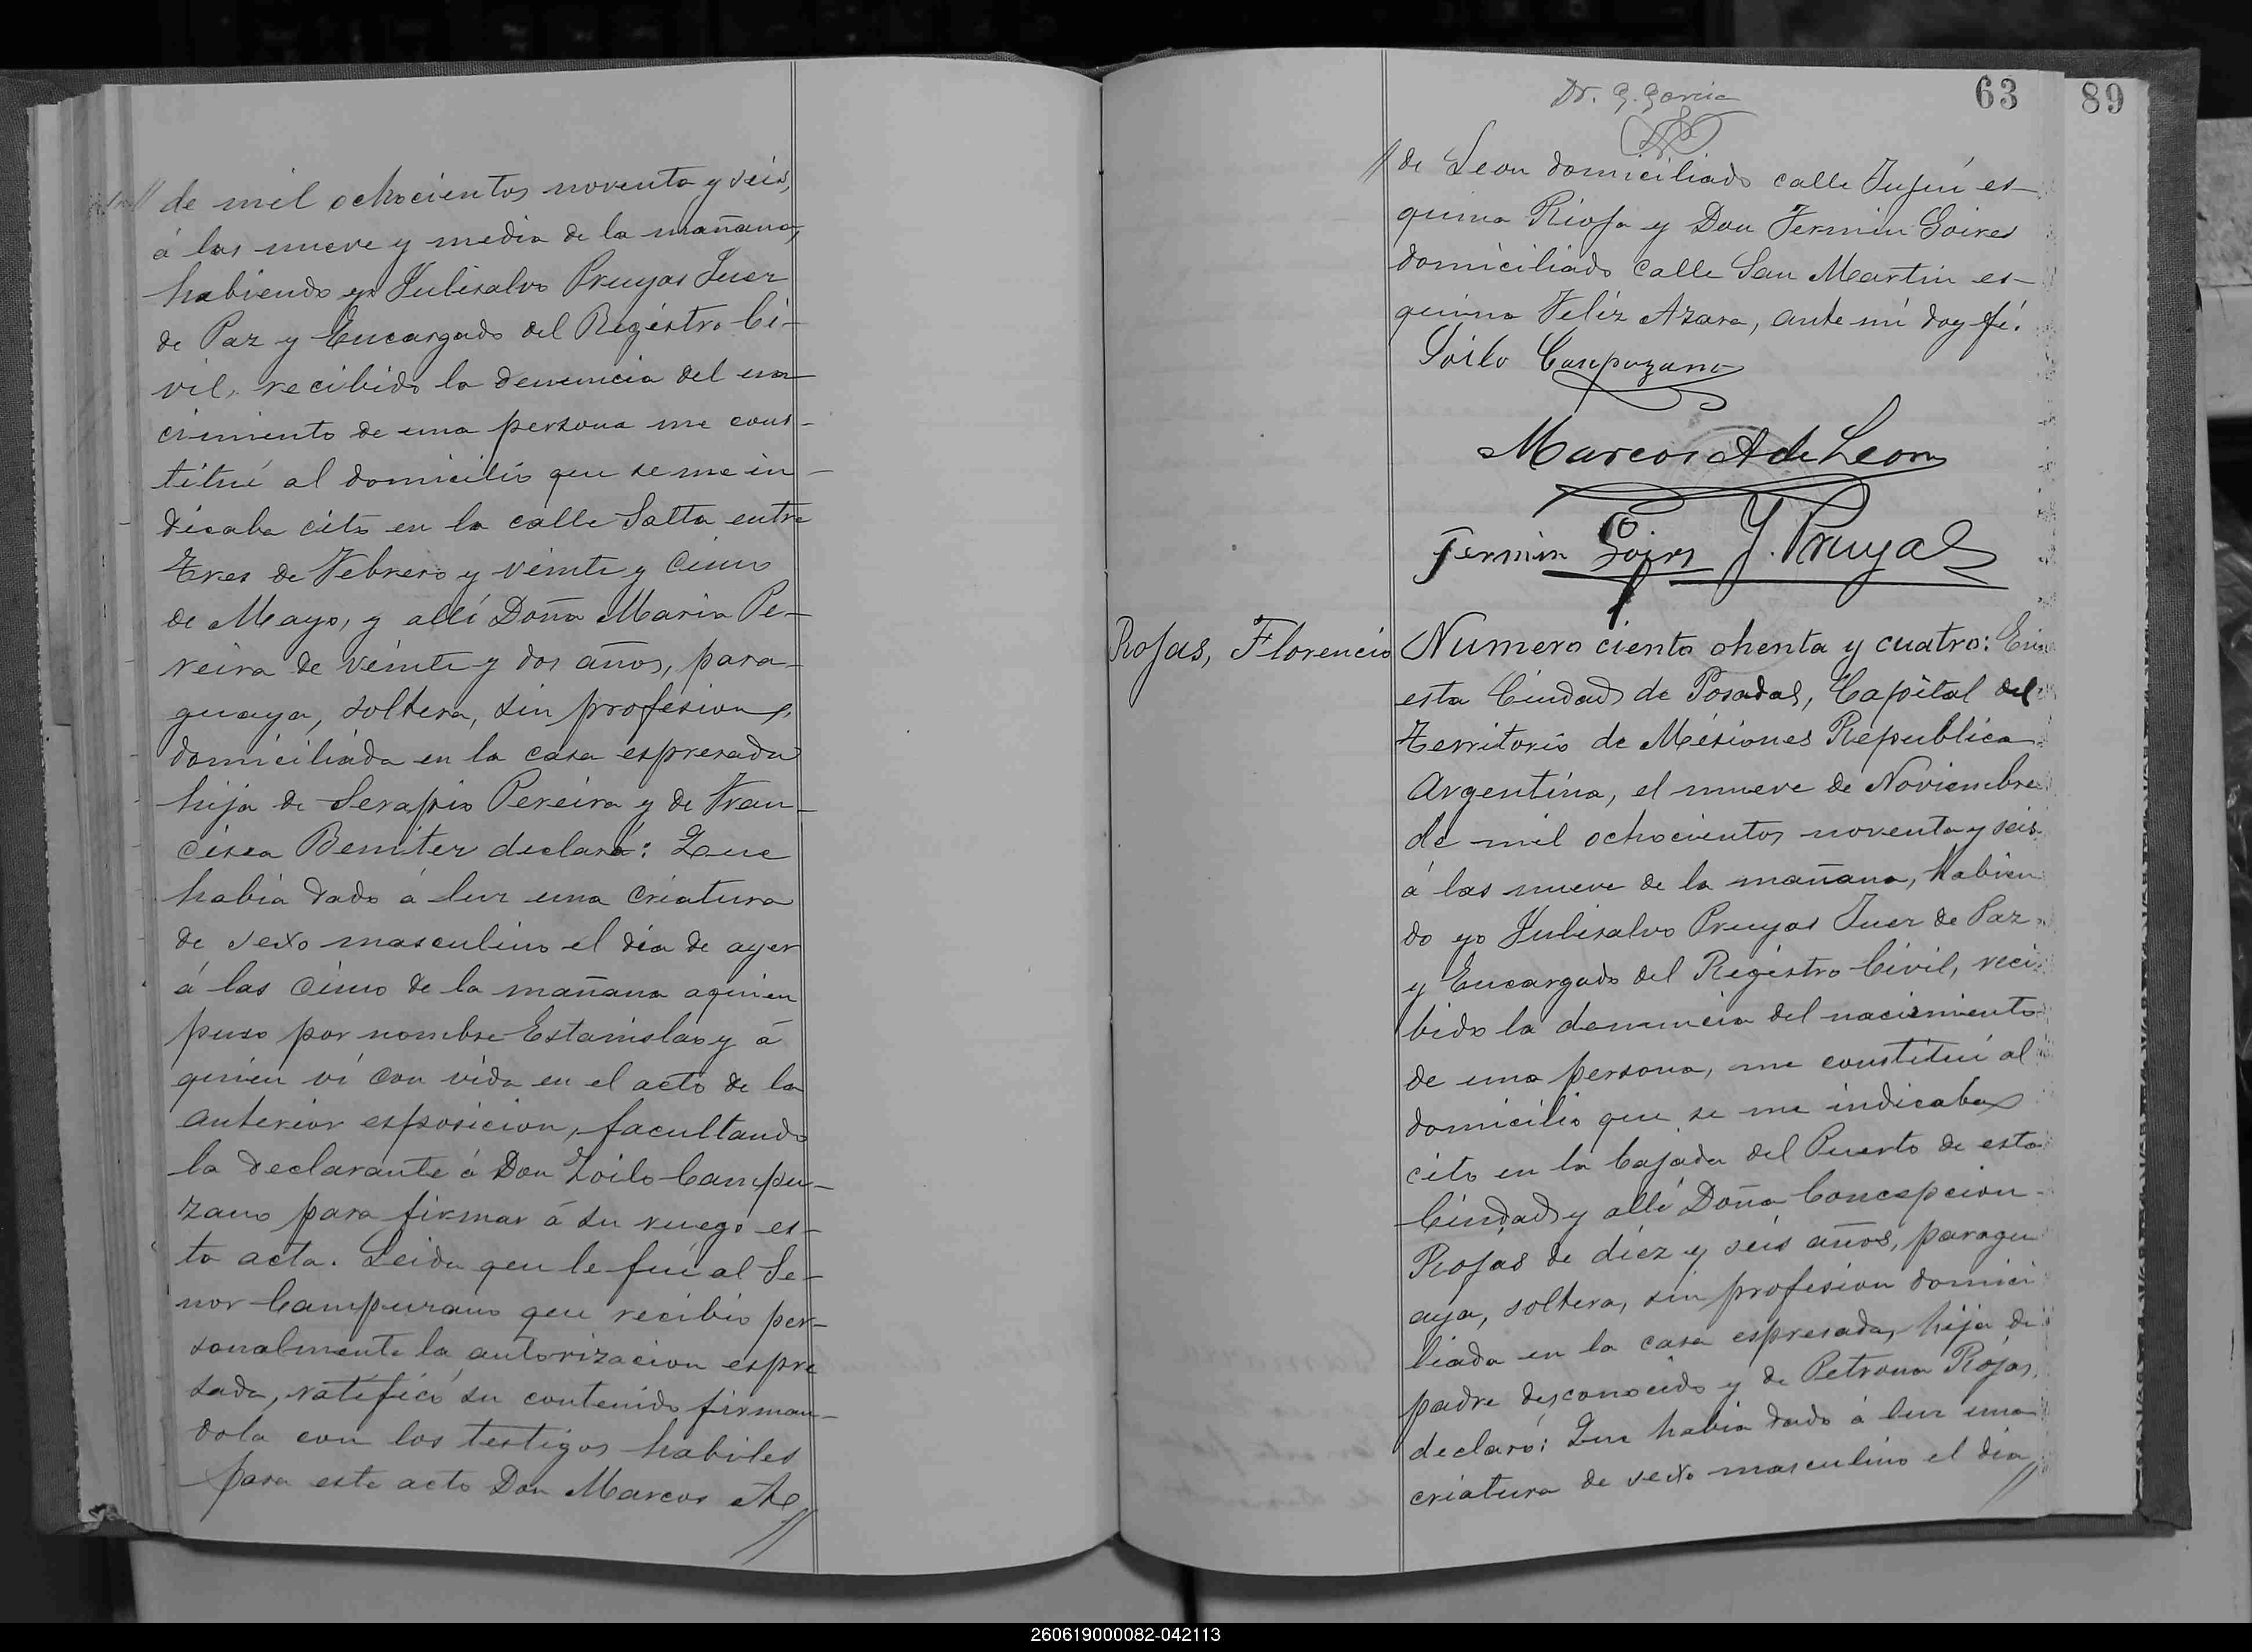 // de mil ochocientos noventa y seis,
á las nueve y media de la mañana,
habiendo yo Julisalvo Pruyas Juez
de Paz y Encargado del Registro Ci-
vil, recibido la denuncia del na-
cimiento de una persona me cons-
tituí al domicilio que se me in-
dicaba cito en la calle Salta entre
Tres de Febrero y veinte y Cinco
de Mayo, y allí Doña Maria Pe-
reira de veinte y dos años, para-
guaya, soltera, sin profesion,
domiciliada en la casa espresada
hija de Serapio Pereira y de Fran-
cisca Benitez declaró: Que
habia dado á luz una criatura
de sexo masculino el dia de ayer
á las cinco de la mañana aquien
puso por nombre Estanislao y á
quien ví con vida en el acto de la
anterior esposicion, facultando
la declarante á Don Zoilo Campu-
zano para firmar á su ruego es-
ta acta. Leida que le fué al Se-
nor Campuzano que recibió per-
sonalmente la autorizacion espre
sada, ratificó su contenido firman-
dola con los testigos habiles
para este acto Don Marcos A.
//
Dr. G. Garcia
63
89
// de Leon domiciliado calle Jujuí es-
quina Rioja y Don Fermin Goires
domiciliado calle San Martin es-
quina Feliz Azara, ante mí doy fé.
Soilo Campuzano
Marcos A de Leon
Fermin Goires J. Pruyas
Rojas, Florencio
Numero ciento ohenta y cuatro: En
esta Ciudad de Posadas, Capital del
Territorio de Misiones Republica
Argentina, el nueve de Noviembre
de mil ochocientos noventa y seis
á las nueve de la mañana, habien
do yo Julisalvo Pruyas Juez de Paz
y Encargado del Registro Civil, reci
bido la denuncia del nacimiento
de una persona, me constituí al
domicilio que se me indicaba
cito en la bajada del Puerto de esta
Ciudad y allí Doña Concepcion
Rojas de diez y seis años, paragu
aya, soltera, sin profesion domici
liada en la casa espresada, hija de
padre desconocido y de Petrona Rojas,
declaró: Que habia dado á luz una
criatura de sexo masculino el dia
//
260619000082-042113